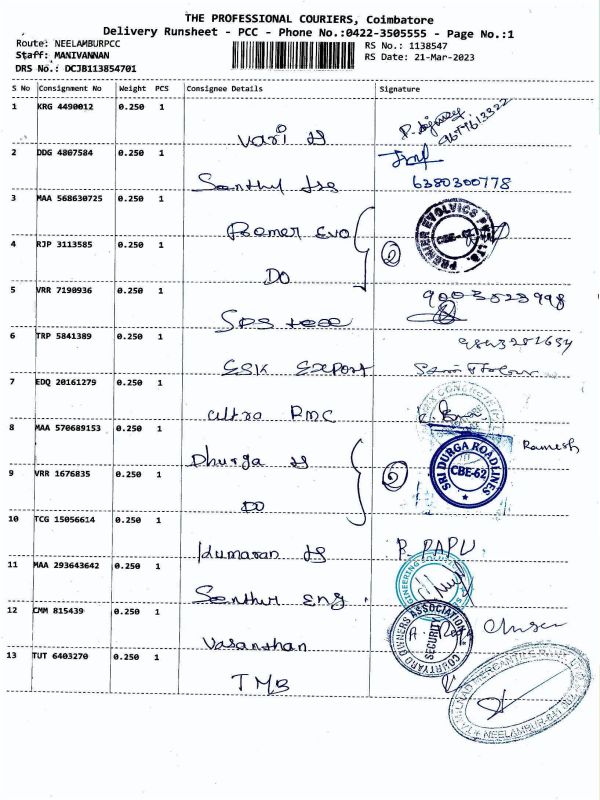 THE PROFESSIONAL COURIERS, Coimbatore
Delivery Runsheet - PCC - Phone No.:0422-3505555 - Page No.:1
Route: NEELAMBURPCC
RS No.: 1138547
Staff: MANIVANNAN
RS Date: 21-Mar-2023
DRS No.: DCJB113854701
S No Consignment No Weight PCS Consignee Details Signature
1 KRG 4490012 0.250 1
Vari
2 DDG 4807584 0.250 1
6380300778
3 MAA 568630725 0.250 1
Evo
PREMIER EVOLVICS PVT. LTD. CBE-62
4 RJP 3113585 0.250 1
DO
2
5 VRR 7190936 0.250 1
SPS
6 TRP 5841389 0.250 1
ESK Export
7 EDQ 20161279 0.250 1
Ultra RMC
8 MAA 570689153 0.250 1
Dhurga
Ramesh
SRI DURGA ROADLINES CBE-62
9 VRR 1676835 0.250 1
DO
2
10 TCG 15056614 0.250 1
Kumaran
P. PAPU.
11 MAA 293643642 0.250 1
Senthur Eng.
12 CMM 815439 0.250 1
Vasanthan
COURTYARD OWNERS ASSOCIATION SECURITY
13 TUT 6403270 0.250 1
TMB
TAMILNAD MERCANTILE BANK
NEELAMBUR